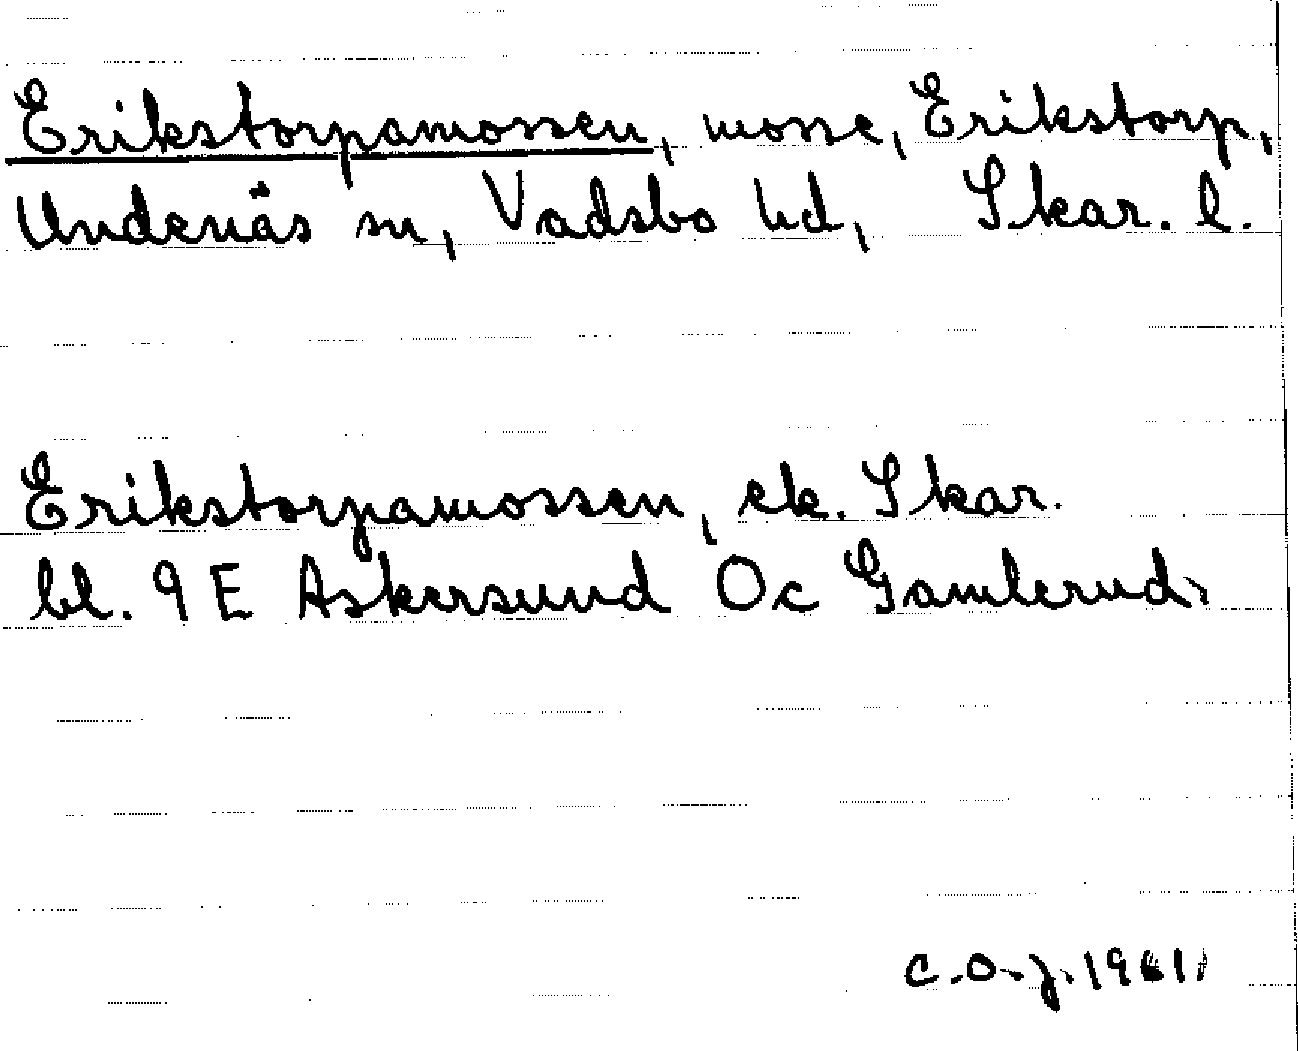 Erikstorpamossen, mosse, Erikstorp,
Undenäs sn, Vadsbo hd, Skar. l.
Erikstorpamossen, ek. Skar.
bl. 9 E Askersund Oc Gamlerud
C.O-j. 1961